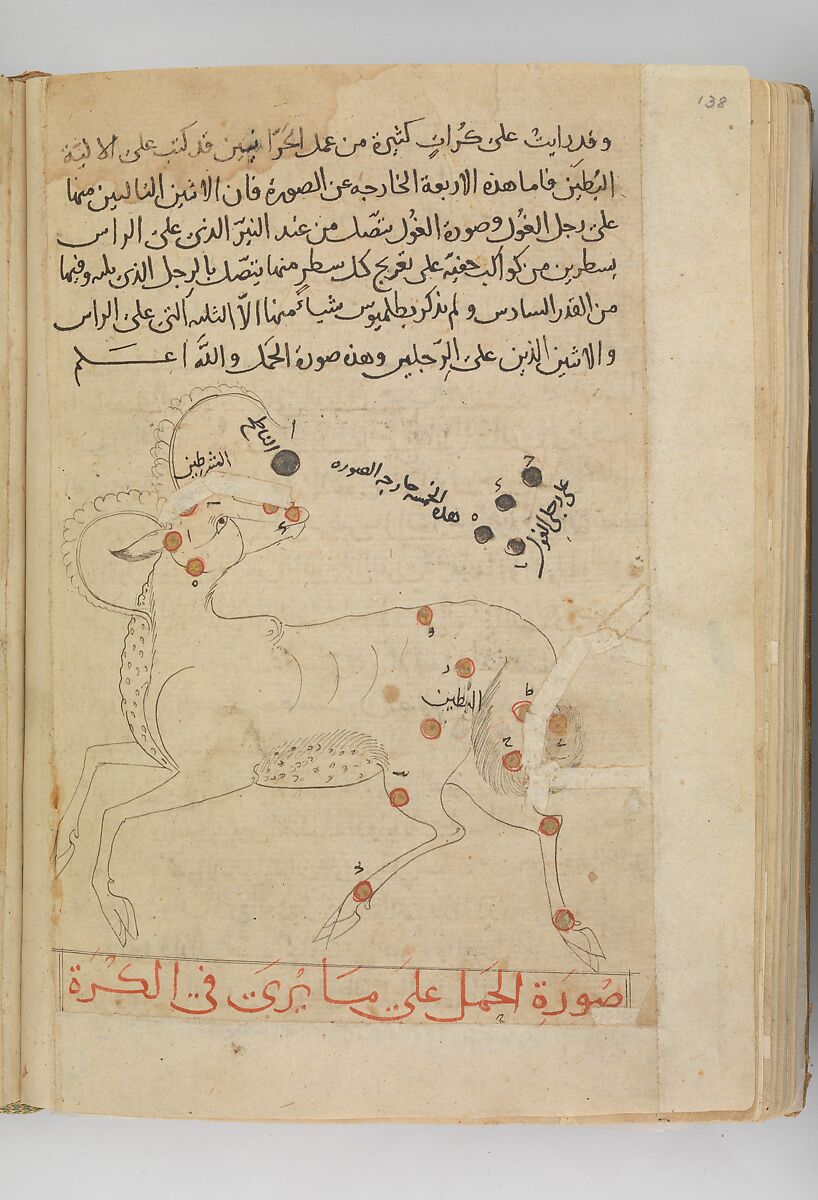 138
وقد رايت على كرات كثيرة من عمل الحرانيين قد كتب على الالية
البُطَين فاما هذه الاربعة الخارجه عن الصورة فان الاثنين التاليين منها
على رجل الغول وصورة الغول يتصل من عند النير الذى على الراس
بسطرين من كواكب خفية على تعريج كل سطر منهما يتصل بالرجل الذى يليه وفيها
من القدر السادس ولم يذكر بطلميوس شياء منها الا الثلثه التى على الراس
والاثنين الذين على الرجلين وهذه صورة الحمل والله اعلم
الناطح
ا
الشرطين
هذه الخمسه خارجه الصوره
على رجلى الغول
البُطَين
صُورَة الحَمَل عَلىَ مَا يُرىَ في الكُرَة